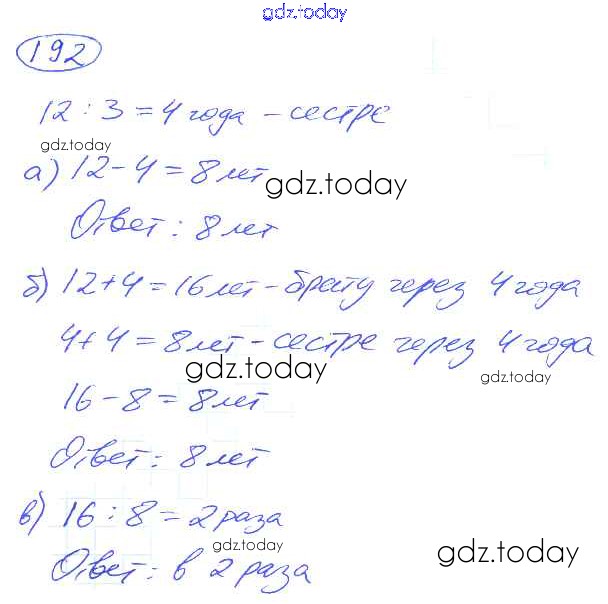 gdz.today
192
12 : 3 = 4 года - сестре
gdz.today
а) 12 - 4 = 8 лет
gdz.today
Ответ : 8 лет
б) 12 + 4 = 16 лет - брату через 4 года
4 + 4 = 8 лет - сестре через 4 года
gdz.today
gdz.today
16 - 8 = 8 лет
Ответ : 8 лет
в) 16 : 8 = 2 раза
gdz.today
gdz.today
Ответ : в 2 раза